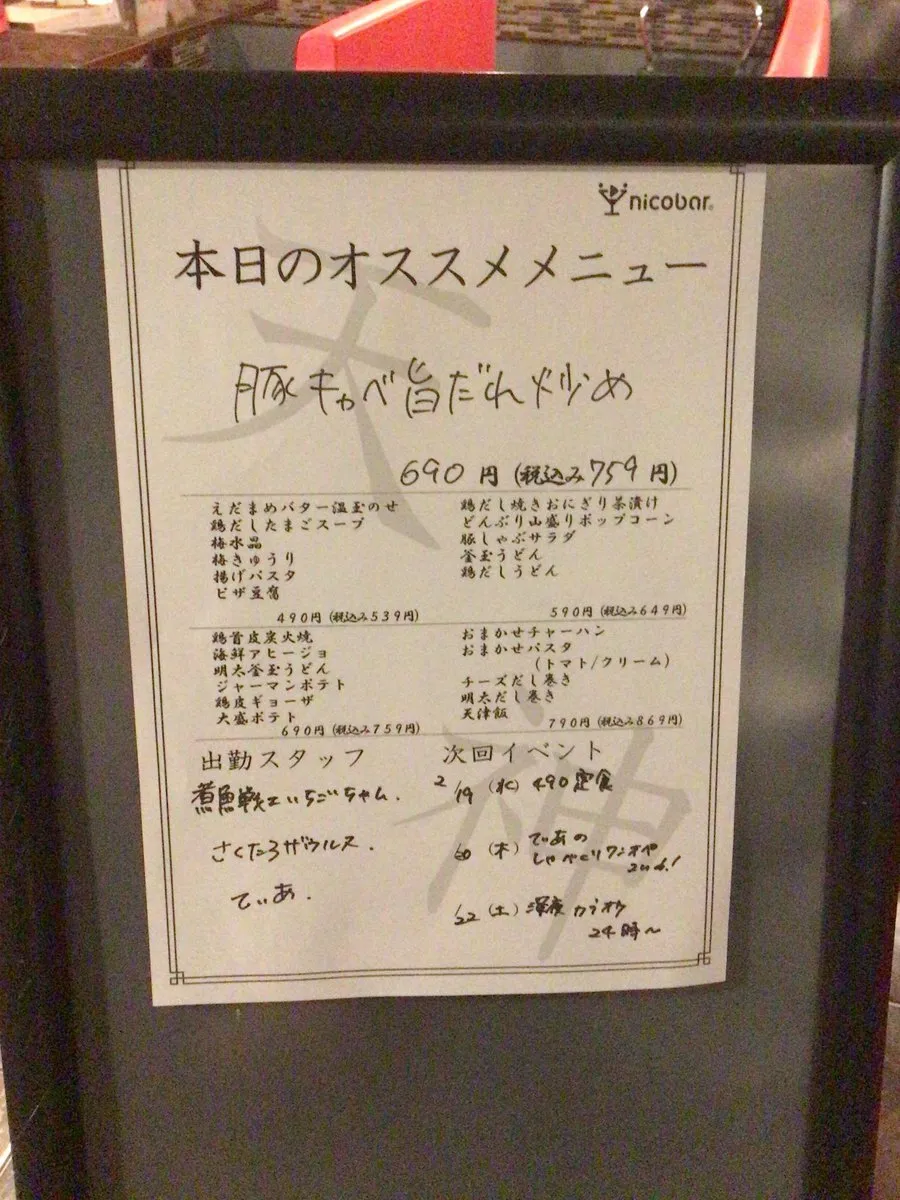 nicobar
本日のオススメメニュー
豚キャベ旨だれ炒め
690円(税込み759円)
えだまめバター温玉のせ
鶏だしたまごスープ
梅水晶
梅きゅうり
揚げパスタ
ピザ豆腐
490円(税込み539円)
鶏だし焼きおにぎり茶漬け
どんぶり山盛りポップコーン
豚しゃぶサラダ
釜玉うどん
鶏だしうどん
590円(税込み649円)
鶏首皮炭火焼
海鮮アヒージョ
明太釜玉うどん
ジャーマンポテト
鶏皮ギョーザ
大盛ポテト
690円(税込み759円)
おまかせチャーハン
おまかせパスタ
(トマト/クリーム)
チーズだし巻き
明太だし巻き
天津飯
790円(税込み869円)
出勤スタッフ
煮魚戦士いちごちゃん.
さくたろザウルス.
てぃあ.
次回イベント
2/19(水)490定食
/20(木)てぃあの
しゃべくりワンオペ
2nd!
/22(土)深夜カラオケ
24時〜
天神